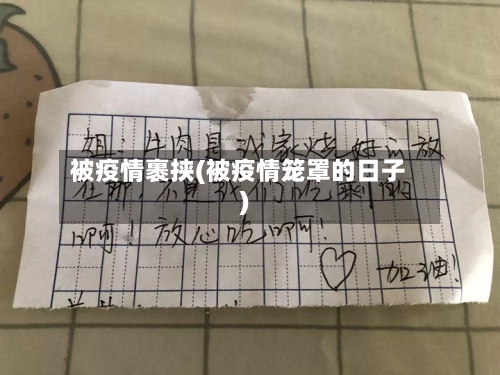 姐：牛肉是我家烧好以放
被疫情裹挟(被疫情笼罩的日子
)
不是我们吃剩的
啊！放心吃啊！
♡ 加油！